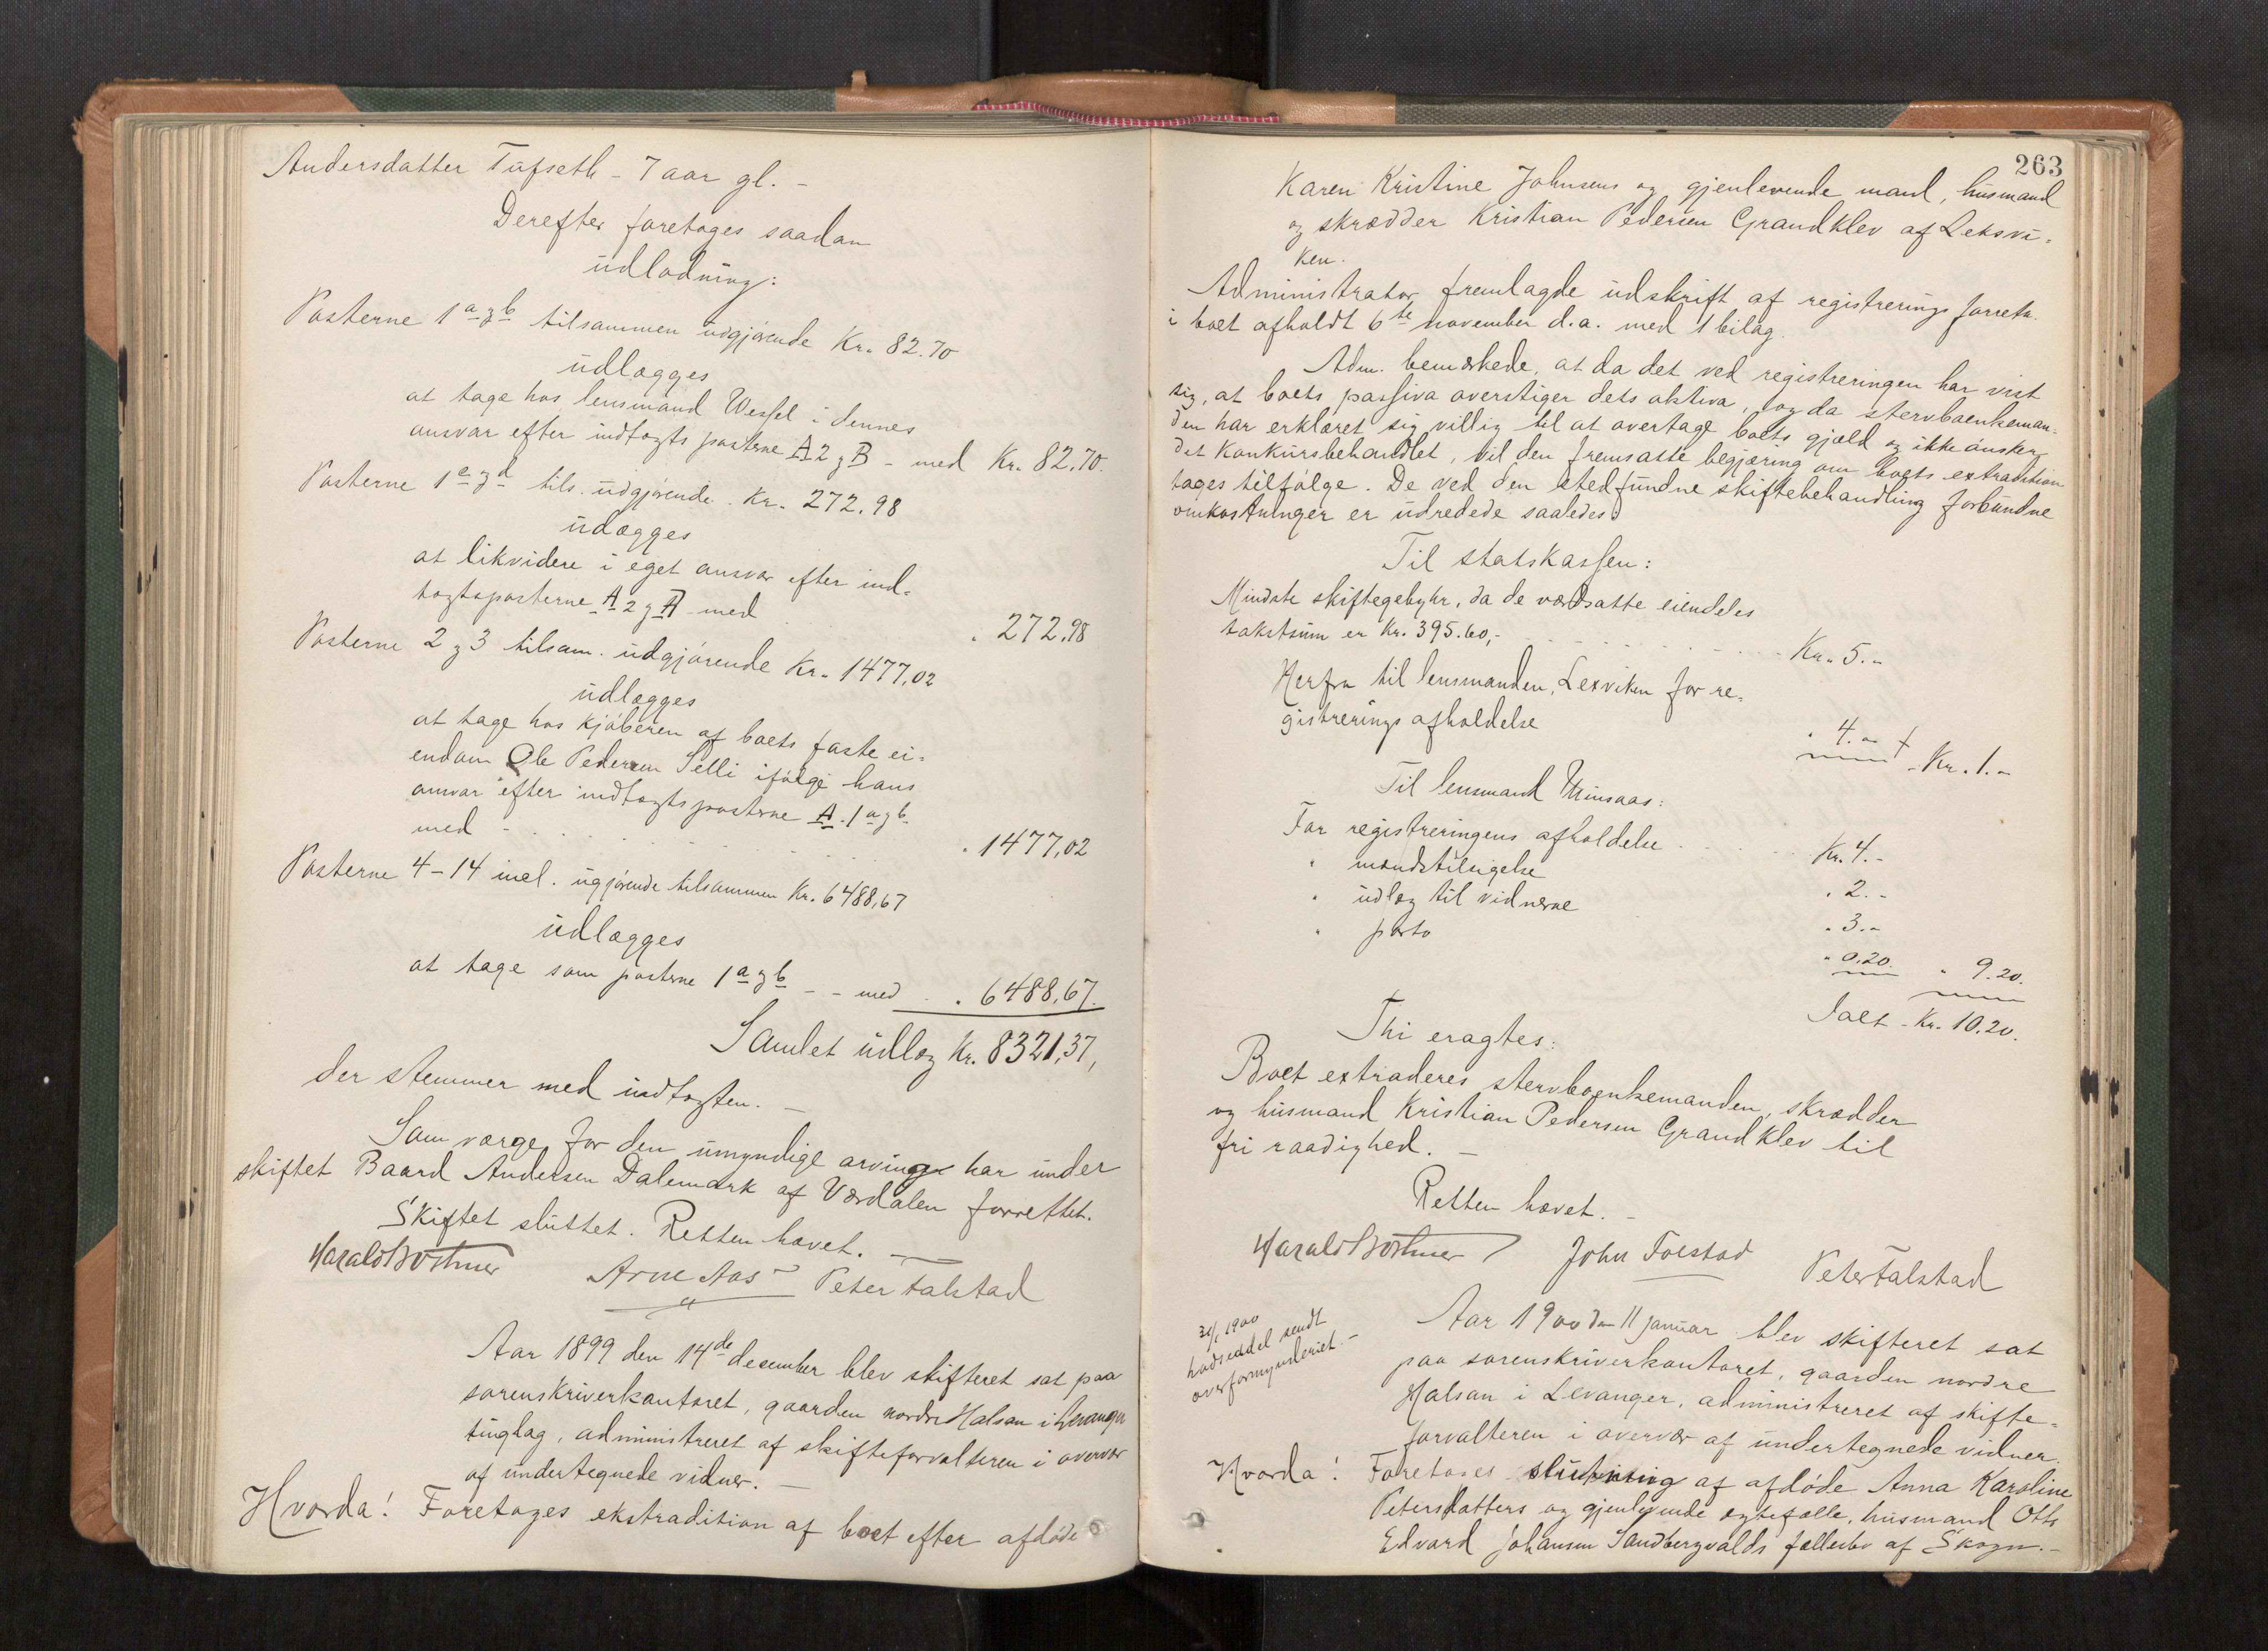 Andersdatter Tufseth - 7 aar gl. -
Derefter foretages saadan
udlodning:
Posterne 1 a og b tilsammen udgjørende Kr. 82.70
udlægges
at tage hos lensmand Wessel i dennes
ansvar efter indtægts posterne A 2 og B - med Kr. 82.70.
Posterne 1 c og d tils. udgjørende Kr. 272.98
udægges
at likvidere i eget ansvar efter ind-
tægtsposterne A 2 og A med . 272.98
Posterne 2 og 3 tilsam. udgjørende Kr. 1477,02
udlægges
at tage hos kjøberen af boets faste ei-
endom Ole Pedersen Selli ifølge hans
ansvar efter indtægtsposterne A. 1 a og b.
med - . 1477,02
Posterne 4-14 incl. ugjørende tilsammen Kr. 6488,67
udlægges
at tage som posterne 1 a og b - - med . 6488,67.
Samlet udlæg Kr. 8321,37,
der stemmer med indtægten. -
Som værge for den umyndige arving har under
skiftet Baard Andersen Dalemark af Værdalen forrettet.
Skiftet sluttet. Retten hævet. -
Harald Bothner Arne Aas Peter Falstad
Aar 1899 den 14de december blev skifteret sat paa
sorenskriverkontoret, gaarden nordre Halsan i Levanger
tinglag, administreret af skifteforvalteren i overvær
af undertegnede vidner. -
Hvorda! Foretages ekstradition af boet efter afdøde
263
Karen Kristine Johnsens og gjenlevende mand, husmand
og skrædder Kristian Pedersen Grandklev af Leksvi-
ken.
Administrator fremlagde udskrift af registrerings forretn.
i boet afholdt 6te november d.a. med 1 bilag.
Adm. bemærkede, at da det ved registreringen har vist
sig, at boets passiva overstiger dets aktiva, og da stervboenkeman-
den har erklæret sig villig til at overtage boets gjæld og ikke ønsker
det konkursbehandlet, vil den fremsatte begjæring om boets extradition
tages tilfølge. De ved den stedfundne skiftebehandling forbundne
omkostninger er udredede saaledes:
Til statskassen:
Mindste skiftegebyhr, da de værdsatte eiendeles
takstsum er Kr. 395.60,- Kr. 5.-
Herfra til lensmanden, Lexviken for re-
gistrerings afholdelse . 4.- Kr. 1.-
Til lensmand Minsaas:
For registreringens afholdelse Kr. 4.-
" mandstilsigelse . 2.-
" udlæg til vidnerne . 3.-
" porto " 0.20 " 9.20.
Ialt - Kr. 10.20.
Thi eragtes:
Boet extraderes stervboenkemanden, skrædder
og husmand Kristian Pedersen Grandklev til
fri raadighed. -
Retten hævet. -
Harald Bothner John Folstad Peter Falstad
31/1 1900
lodseddel sendt
overformynderiet. -
Aar 1900 den 11 januar blev skifteret sat
paa sorenskriverkontoret, gaarden nordre
Halsan i Levanger, administreret af skifte-
forvalteren i overvær af undertegnede vidner.
Hvorda! Foretoges slutning af afdøde Anna Karoline
Petersdatters og gjenlevende ægtefælle, husmand Otto
Edvard Johansen Sandbergvalds fællesbo af Skogn. -